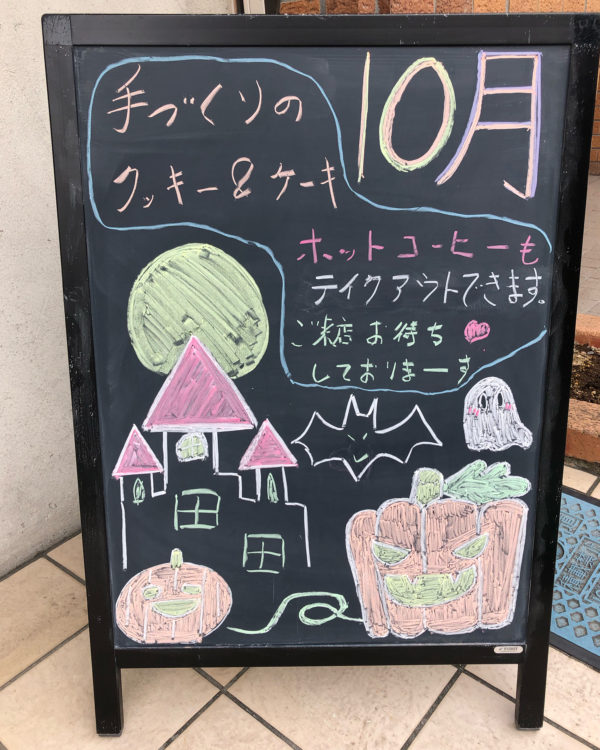 10月
手づくりの
クッキー&ケーキ
ホットコーヒーも
テイクアウトできます。
ご来店お待ち
しておりまーす